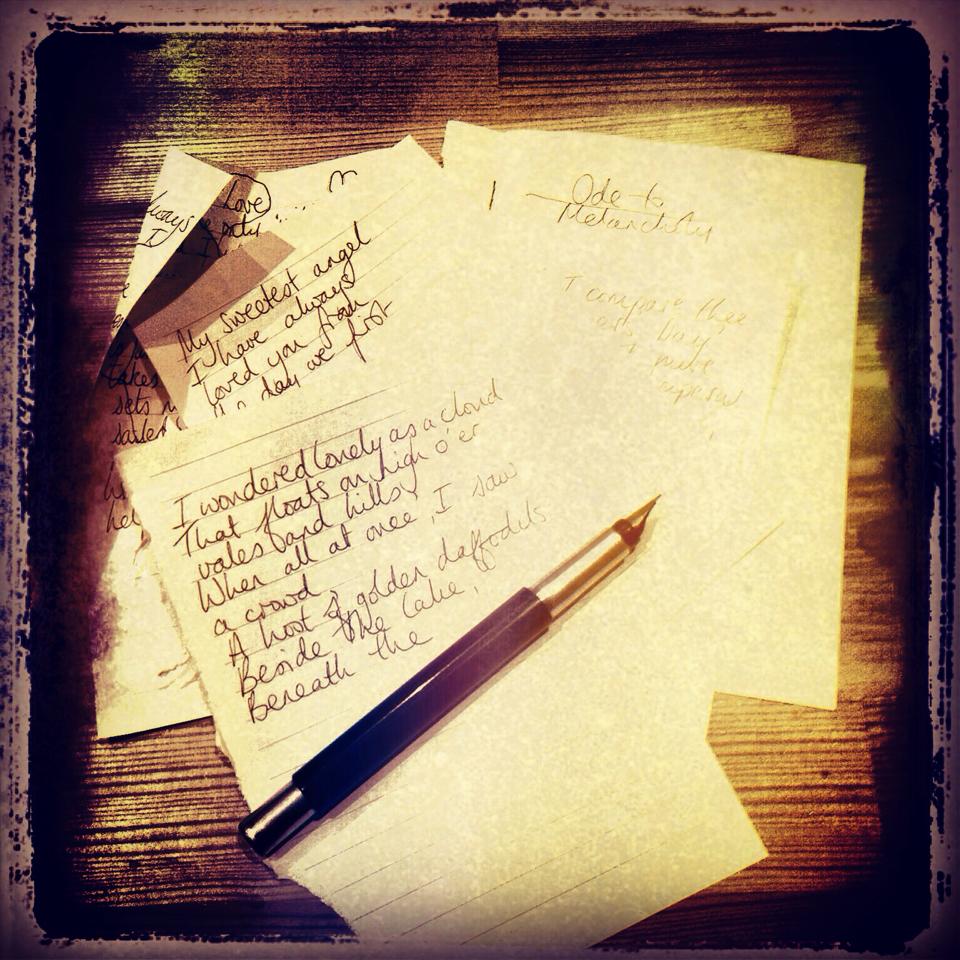 always
I
Love
My sweetest angel
I have always
loved you from
day we first
takes
sets
I wondered lonely as a cloud
That floats on high o'er
vales and hills,
When all at once, I saw
a crowd
A host of golden daffodils
Beside the lake,
Beneath the
Ode to
Melancholy
I compare thee